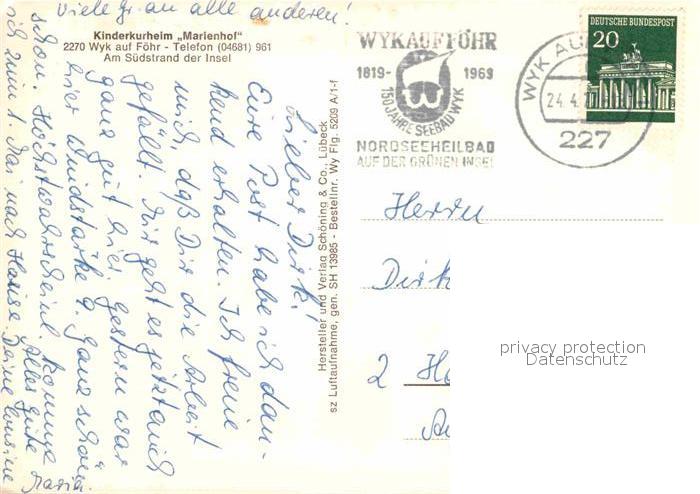 Viele Gr. an alle anderen!
Kinderkurheim „Marienhof“
2270 Wyk auf Föhr - Telefon (04681) 961
Am Südstrand der Insel
Lieber Dirk!
Eure Post habe ich dan-
kend erhalten. Ich freue
mich, daß Dir die Arbeit
gefällt. Mir geht es jetzt auch
ganz gut hier, gestern war
hier Windstärke 9. Ganz schön
schon. Höchstwahrscheinl. komme
ich zum 1. Mai nach Hause. Alles Gute
Deine Cousine
Maria.
Hersteller und Verlag Schöning & Co., Lübeck
sz Luftaufnahme, gen. SH 13985 - Bestellnr. Wy Flg. 5209 A/1-f
WYK AUF FÖHR
1819-
1969
150 JAHRE SEEBAD WYK
NORDSEEHEILBAD
AUF DER GRÜNEN INSEL
WYK AU
24.4.
227
DEUTSCHE BUNDESPOST
20
Herrn
Dirk
2 H
privacy protection
Datenschutz